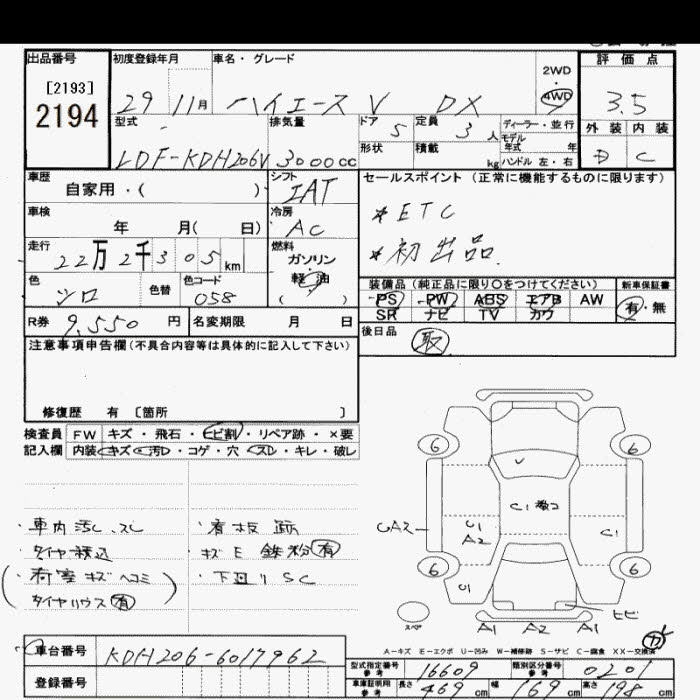 出品番号 初度登録年月 車名・グレード 評価点
[2193]
2194
29 11月 ハイエース V DX 2WD 4WD 3.5
型式 排気量 ドア 5 定員 3人 ディーラー・並行 外装 内装
モデル年式 年
LDF-KDH206V 3000cc 形状 積載 kg ハンドル 左・右 D C
車歴 シフト セールスポイント (正常に機能するものに限ります)
自家用・( ) IAT
車検 冷房 * ETC
年 月( 日) AC
走行 燃料 * 初出品.
22万2千305km ガソリン
軽油
色 色替 色コード ( ) 装備品 (純正品に限り○をつけてください) 新車保証書
シロ 058 PS PW ABS エアB AW 有・無
SR ナビ TV カワ
R券 9,550円 名変期限 月 日
後日品 取
注意事項申告欄(不具合内容等は具体的に記入して下さい)
修復歴 有 [箇所 ]
検査員 FW キズ・飛石・ヒビ割・リペア跡・×要
記入欄 内装 キズ・汚れ・コゲ・穴・スレ・キレ・破レ
6 6
C1
UA2 U1 C1
A2
・車内汚レ、スレ ・看板跡
・タイヤ積込 ・キズE 鉄粉有
(荷室キズヘコミ) ・下回りSC
タイヤハウス有
6 6
U1
ヒビ
スペア A1 A2 A1
A-キズ E-エクボ U-凹み W-補修跡 S-サビ C-腐食 XX-交換済
車台番号 KDH206-6017962
型式指定番号 参考 16609 類別区分番号 参考 0201
登録番号
車庫証明用 参考 長さ 469cm 幅 169cm 高さ 198cm